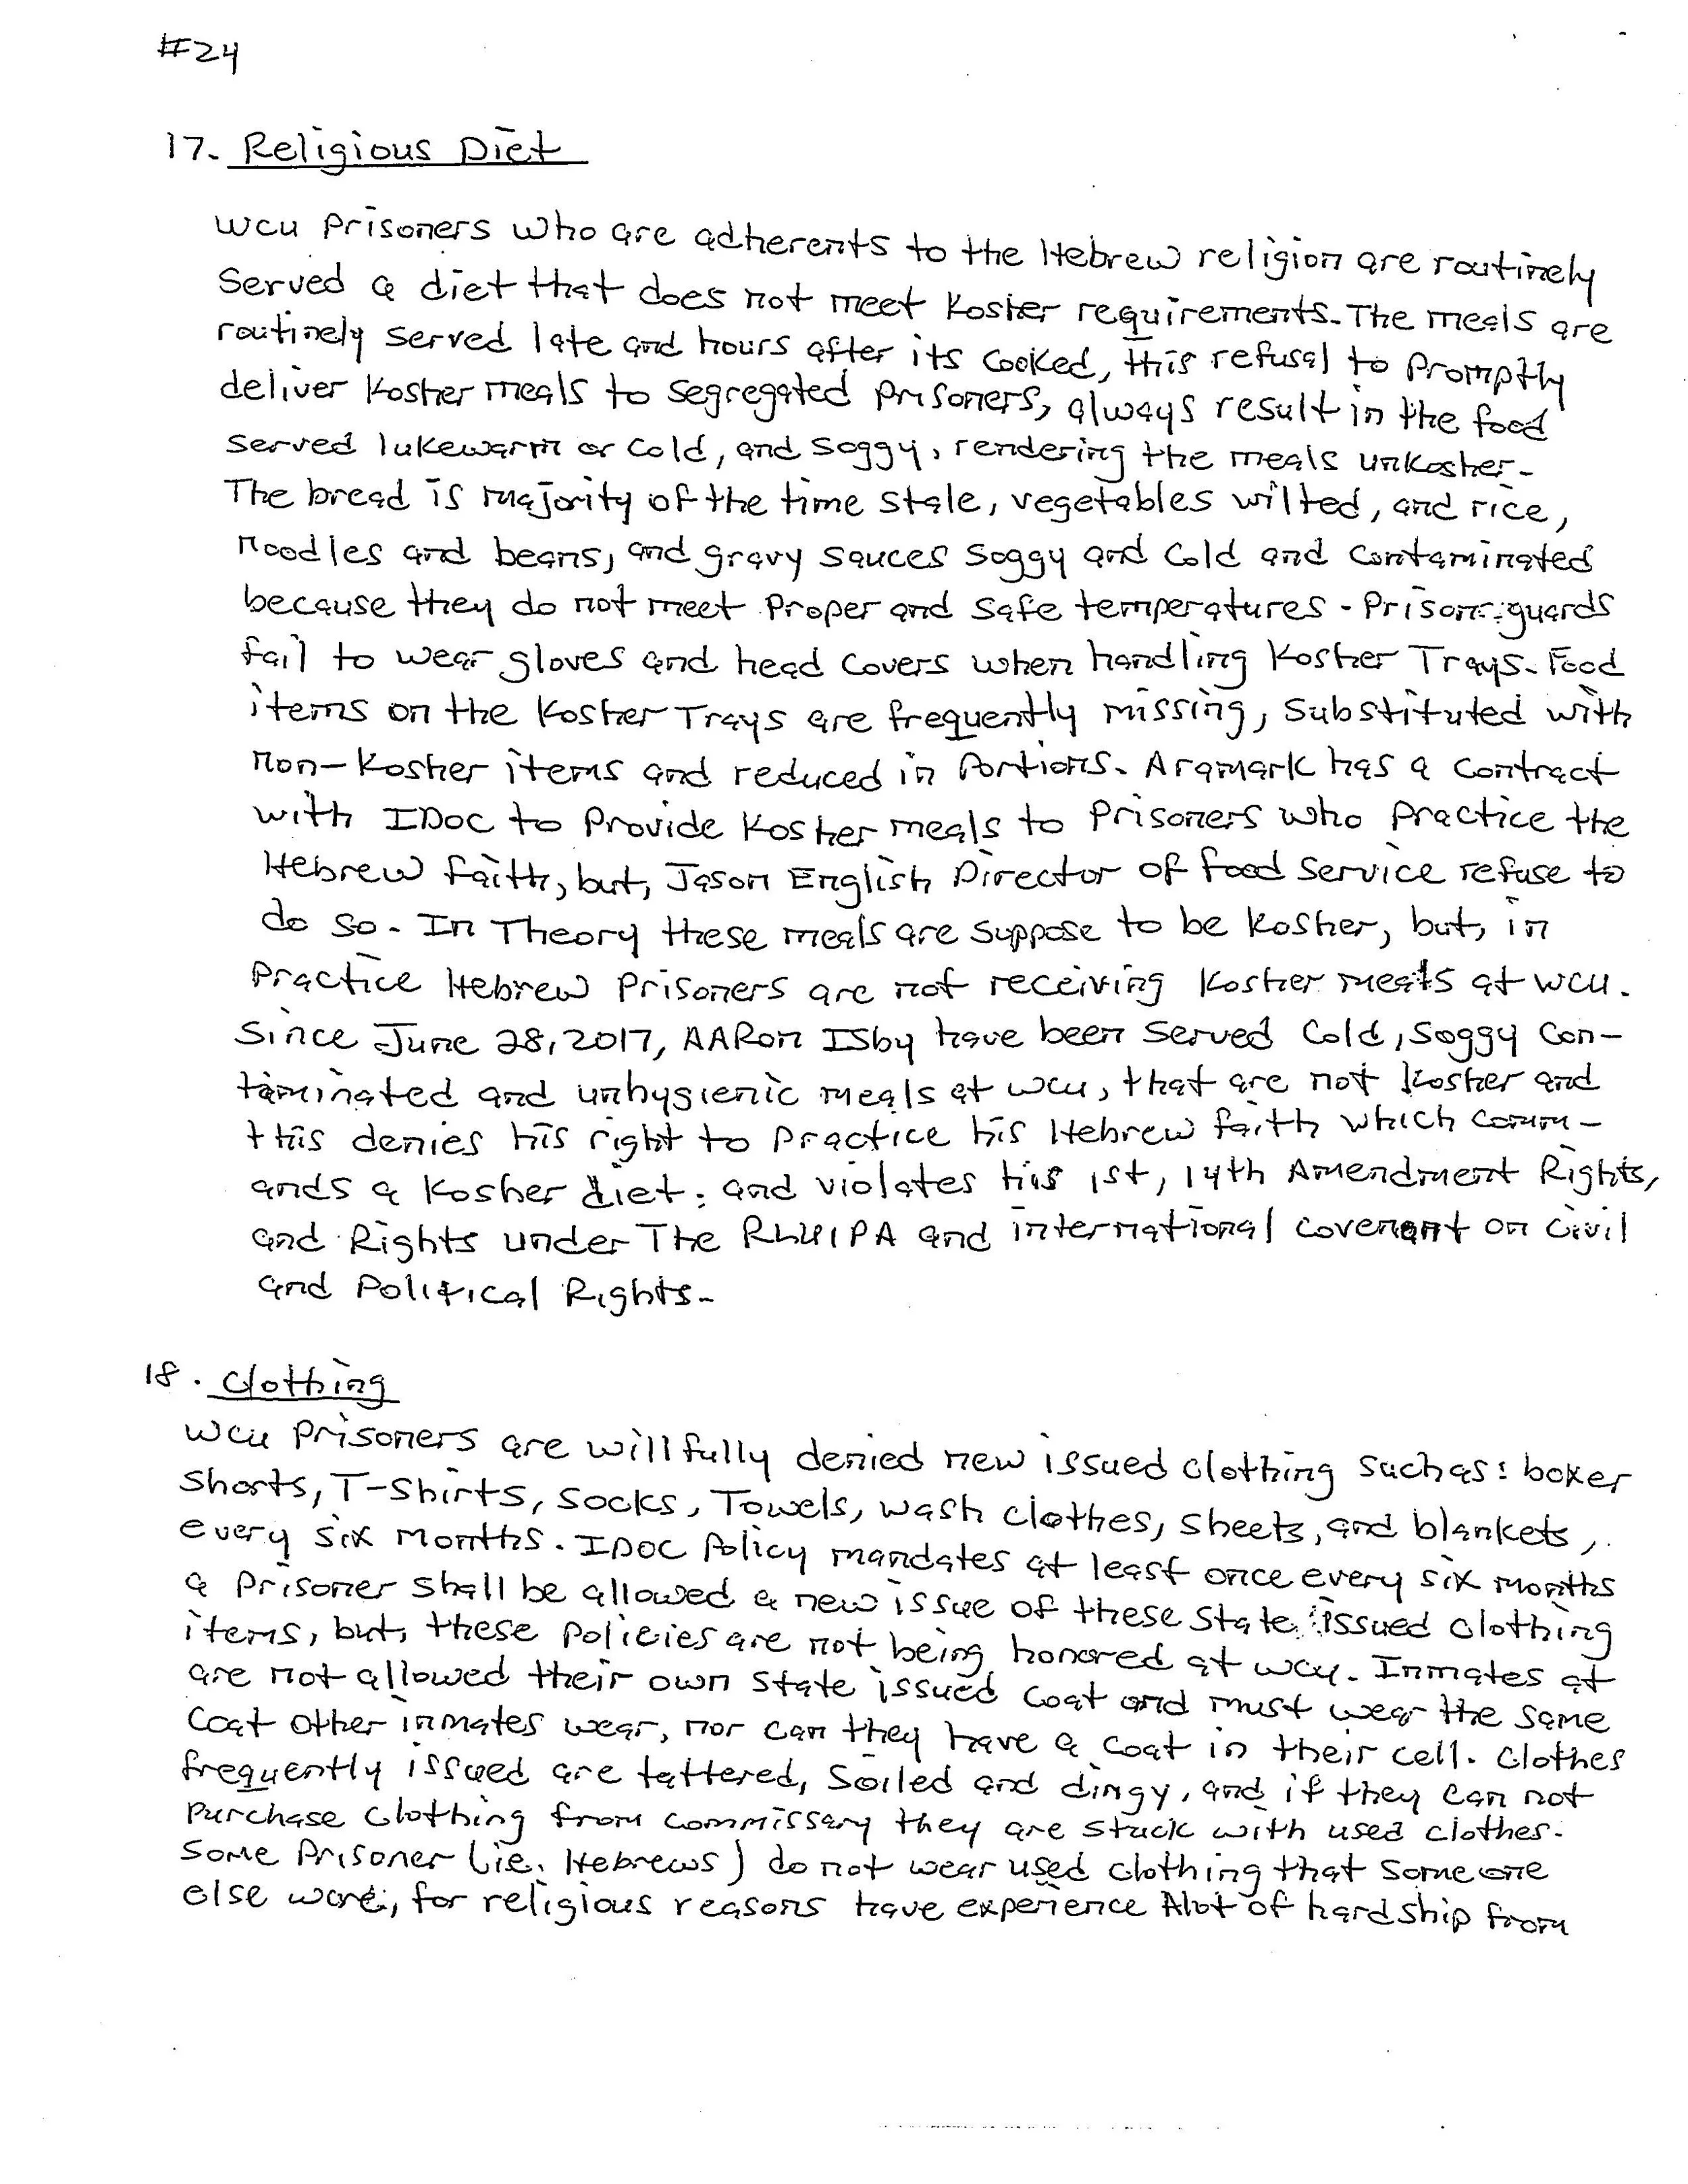 #24
17. Religious Diet
WCU Prisoners who are adherents to the Hebrew religion are routinely
Served a diet that does not meet Kosher requirements. The meals are
routinely served late and hours after its cooked, this refusal to Promptly
deliver Kosher meals to segregated Prisoners, always result in the food
served lukewarm or cold, and soggy, rendering the meals unkosher.
The bread is majority of the time stale, vegetables wilted, and rice,
noodles and beans, and gravy sauces soggy and cold and contaminated
because they do not meet proper and safe temperatures. Prison guards
fail to wear gloves and head covers when handling Kosher Trays. Food
items on the Kosher Trays are frequently missing, substituted with
non-Kosher items and reduced in Portions. Aramark has a contract
with IDOC to Provide Kosher meals to Prisoners who Practice the
Hebrew faith, but, Jason English Director of food service refuse to
do so. In Theory these meals are suppose to be Kosher, but, in
Practice Hebrew Prisoners are not receiving Kosher meals at WCU.
Since June 28, 2017, AARon ISby have been served cold, soggy con-
taminated and unhygienic meals at WCU, that are not Kosher and
this denies his right to practice his Hebrew faith which comm-
ands a Kosher diet. and violates his 1st, 14th Amendment Rights,
and Rights under The RLUIPA and international covenant on civil
and Political Rights.
18. Clothing
WCU Prisoners are willfully denied new issued clothing such as: boxer
shorts, T-Shirts, socks, Towels, wash clothes, sheets, and blankets,
every six months. IDOC Policy mandates at least once every six months
a Prisoner shall be allowed a new issue of these state issued clothing
items, but, these policies are not being honored at WCU. Inmates at
are not allowed their own state issued coat and must wear the same
coat other inmates wear, nor can they have a coat in their cell. Clothes
frequently issued are tattered, soiled and dingy, and if they can not
purchase clothing from commissary they are stuck with used clothes.
Some Prisoner (ie. Hebrews) do not wear used clothing that some one
else wore, for religious reasons have experience Alot of hardship from